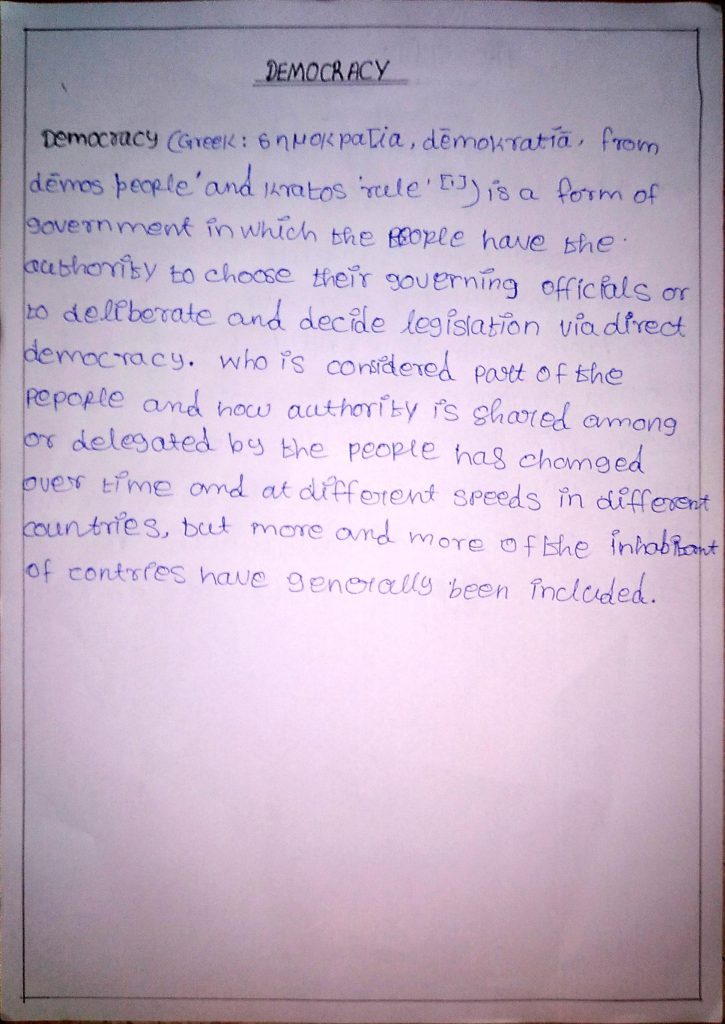 DEMOCRACY
Democracy (Greek: δημοκρατία, dēmokratiā, from
dēmos people' and kratos 'rule' [1]) is a form of
government in which the people have the
authority to choose their governing officials or
to deliberate and decide legislation via direct
democracy. who is considered part of the
pepople and how authority is shared among
or delegated by the people has changed
over time and at different speeds in different
countries, but more and more of the inhabitant
of contries have generally been included.